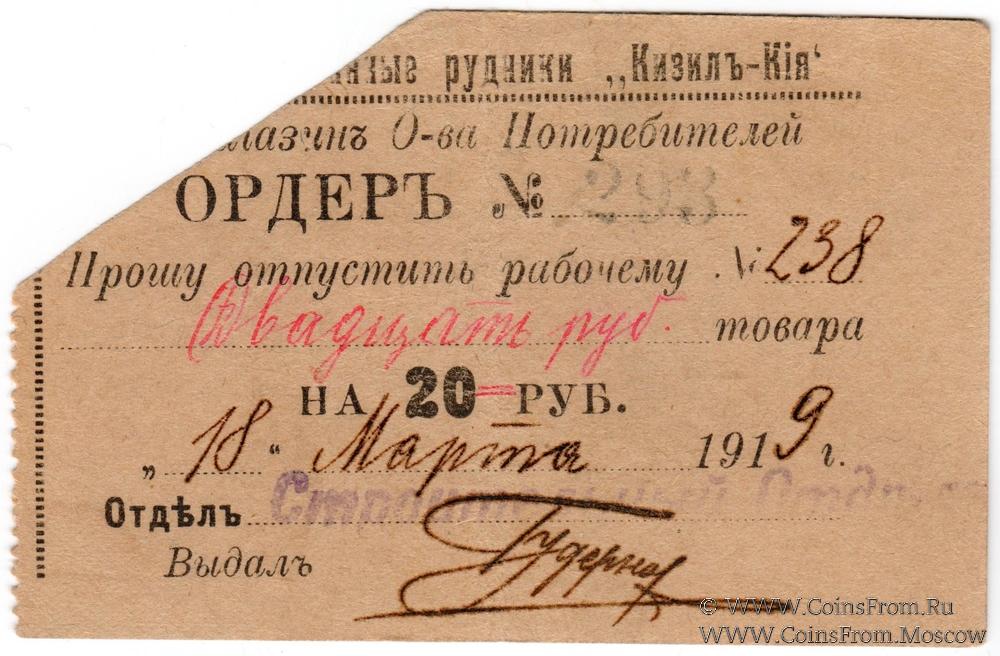 нные рудники „Кизилъ-Кія“
агазинъ О-ва Потребителей
ОРДЕРЪ № 293
Прошу отпустить рабочему № 238
Двадцать руб. товара
НА 20 = РУБ.
„ 18 “ Марта 1919 г.
Отдѣлъ Строительный Отдѣл
Выдалъ
© WWW.CoinsFrom.Ru
WWW.CoinsFrom.Moscow